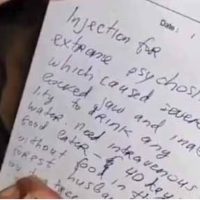 Date: 1
Injection for
extrame psychosi
which caused sever
locked jaw and ina
lity to drink any
water. need intravenous
food eater 40 day
without food in
forest husba